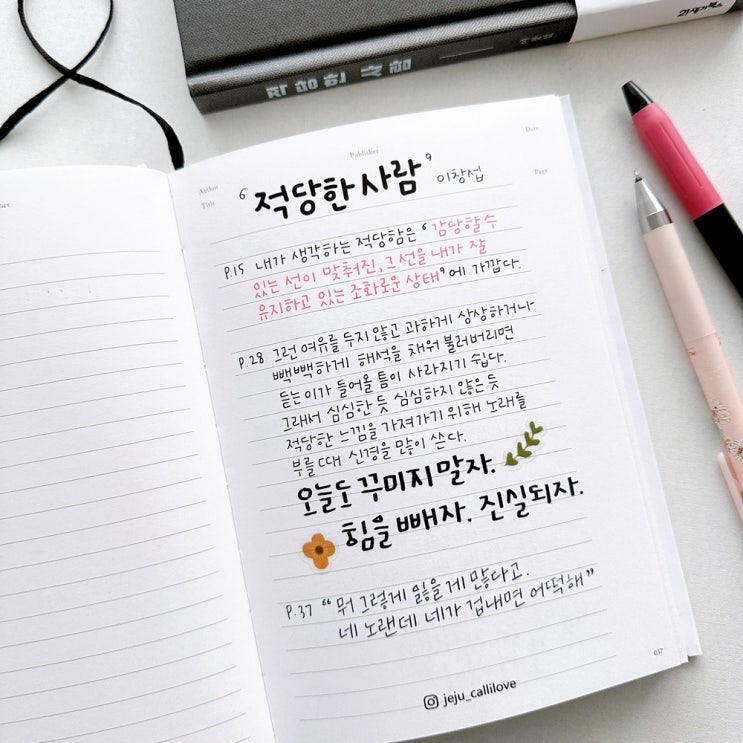 적당한 사람
21세기북스
Publisher
Date
Author
Title
Page
‘적당한 사람’ 이창섭
P.15 내가 생각하는 적당함은 ‘감당할 수
있는 선이 맞춰진, 그 선을 내가 잘
유지하고 있는 조화로운 상태’에 가깝다.
P.28 그런 여유를 두지 않고 과하게 상상하거나
빽빽하게 해석을 채워 불러버리면
듣는이가 들어올 틈이 사라지기 쉽다.
그래서 심심한 듯 심심하지 않은 듯
적당한 느낌을 가져가기 위해 노래를
부를 때 신경을 많이 쓴다.
오늘도 꾸미지 말자.
힘을 빼자. 진실되자.
P.37 “뭐 그렇게 잃을 게 많다고.
네 노랜데 네가 겁내면 어떡해”
037
jeju_callilove